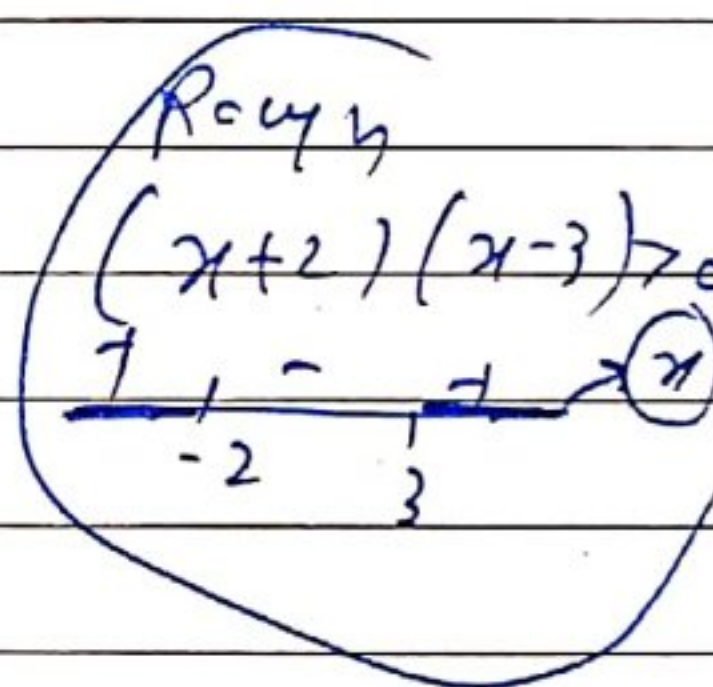 Rough
(x+2)(x-3)>0
+ - +
-2 3
x